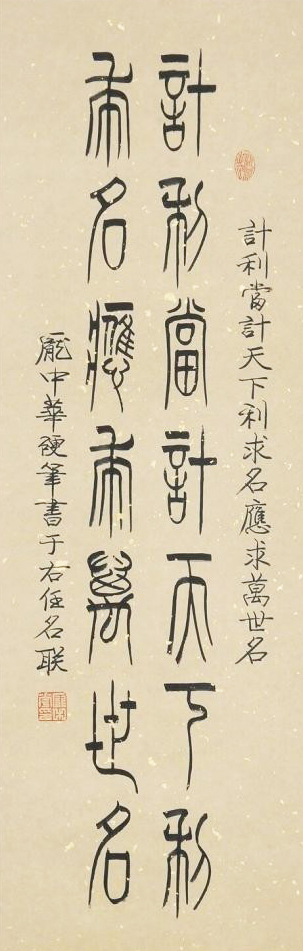 計利當計天下利求名應求萬世名
計利當計天下利
求名應求萬世名
龐中華硬筆書于右任名联